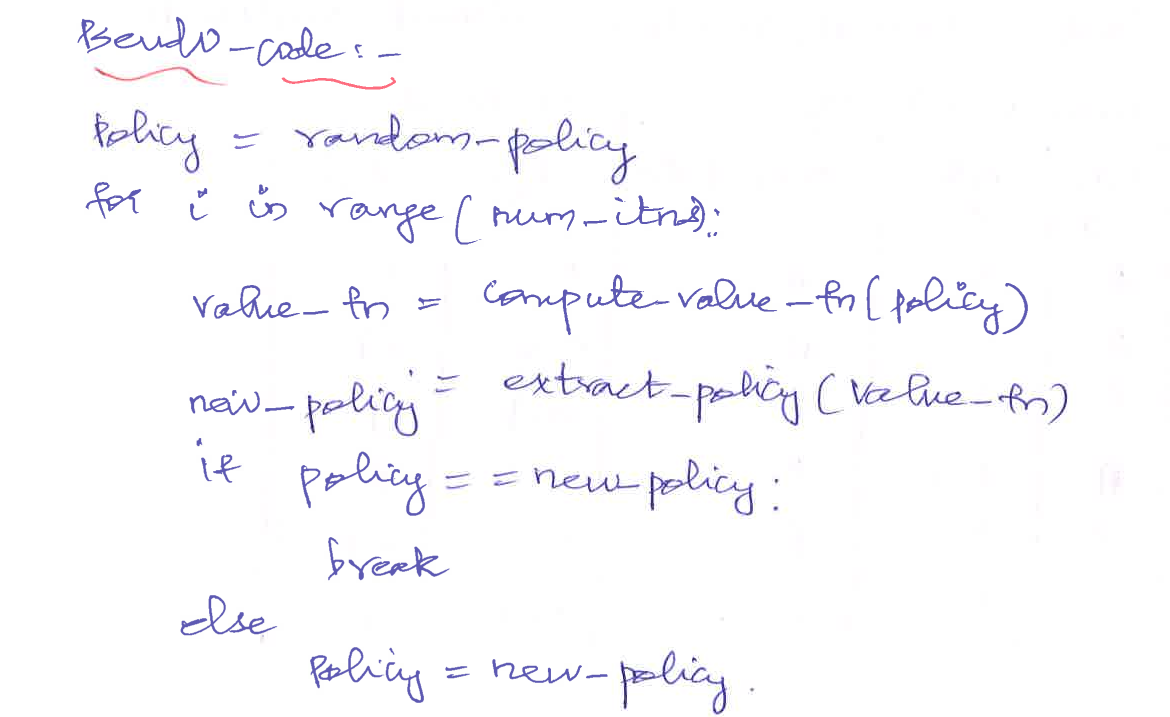 Pseudo-code:-
Policy = random-policy
for i in range(num-itns):
value-fn = compute-value-fn(policy)
new-policy = extract-policy(value-fn)
if policy == new-policy:
break
else
Policy = new-policy.